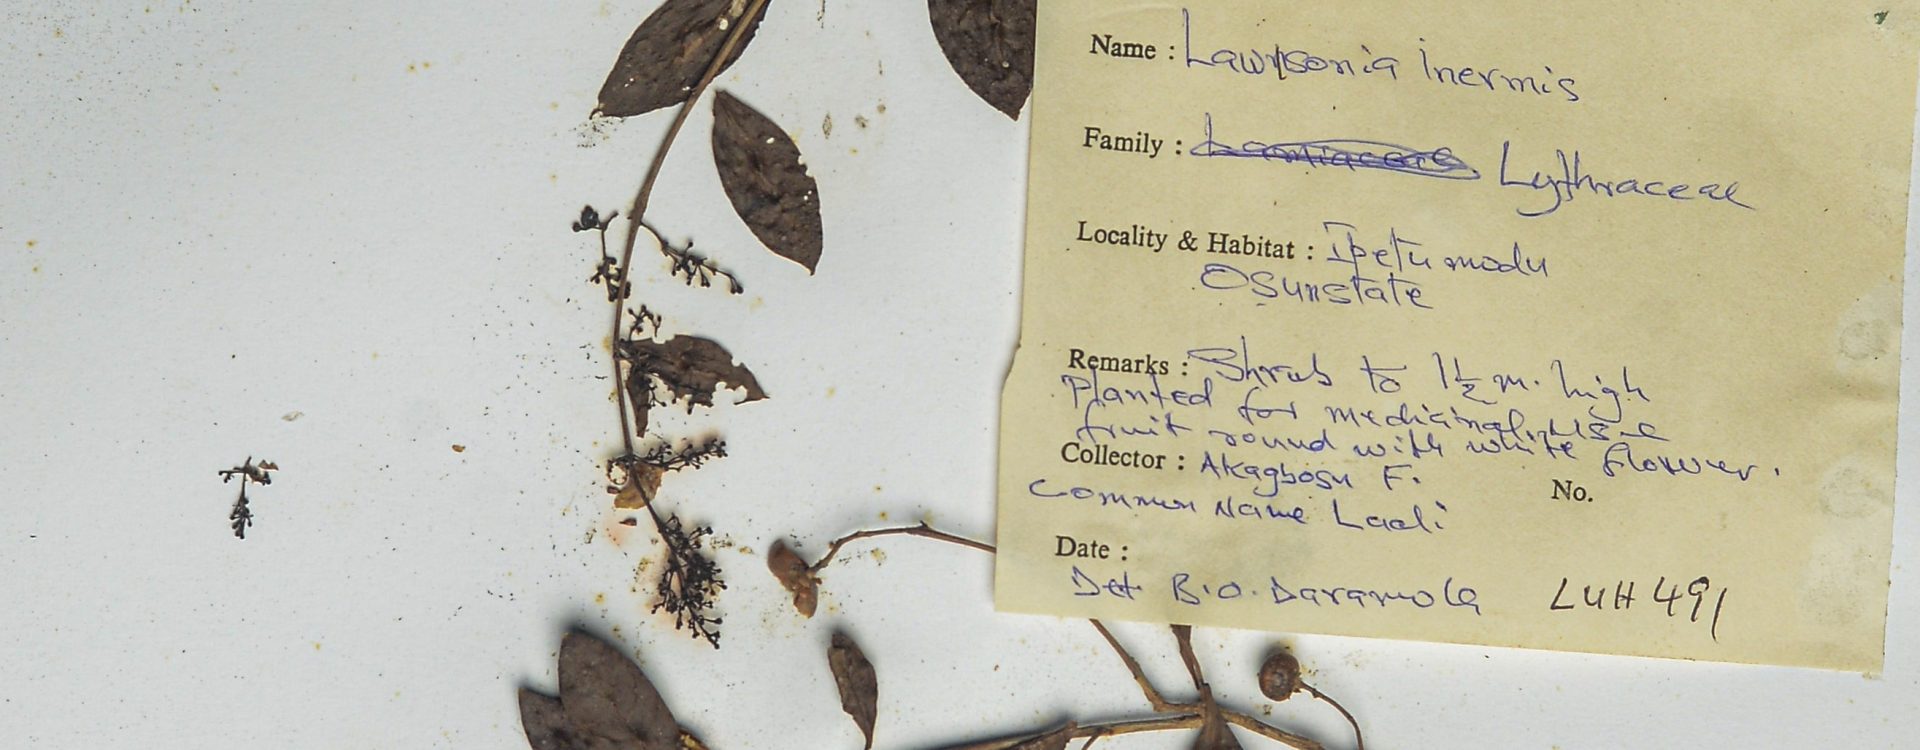 Name : Lawsonia inermis
Family : Lamiaceae Lythraceae
Locality & Habitat : Ipetumodu
Osun state
Remarks : Shrub to 1½ m. high
Planted for medicinal use
fruit round with white flower.
Collector : Akagbosu F.
No.
Common Name Laali
Date :
Det B.O. Daramola LUH 491